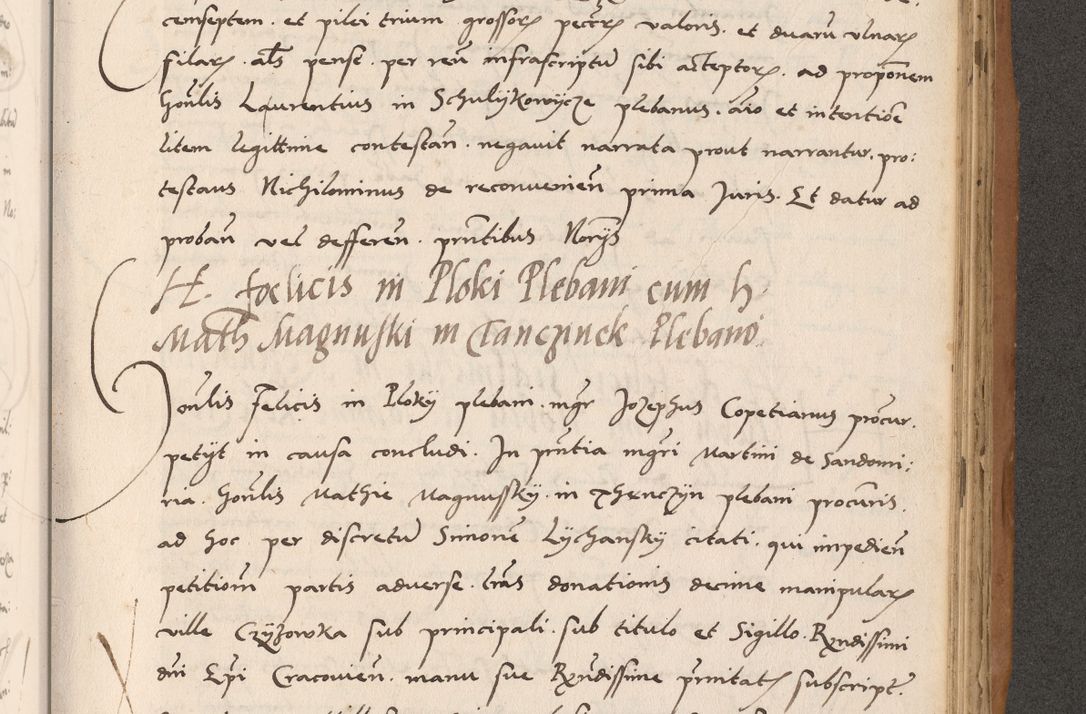 censeptem. et pilei trium grossorꝝ pectrꝝ valoris. et duarū ulnarꝝ
filarꝝ. als pense. per reū infrascriptū sibi acceptorꝝ. ad proponem
honlis Laurentius in Schulijkowycze plebanus. aīo et intentiōe
litem legittime contestan̄. negavit narrata prout narrantur. pro:
testans Nichilominus de reconvenien̄ prima Juris. Et datur ad
proban̄ vel defferen̄. pn̄tibus Norijs
H. foelicis in Ploki Plebani cum h.
Math Magnuski in Tanczinek Plebano
Honlis Felicis in Ploky plebani. mgr Jozephus Copetianus procur.
petijt in causa concludi. In pn̄tia mgri Martini de Sandomi:
ria. honlis Mathie Magnussky. in Thenczyn plebani procuris.
ad hoc per discretū Simonē Lychansky citati. qui impedien̄
petitiom̄ partis adverse. lrās donationis decime manipularꝝ
ville Czyżowka sub principali. sub titulo et Sigillo. Rx̄ndissimi
dnī Epī Cracovien̄. manu sue Rx̄ndissime pr̄nitatꝭ subscript̄.